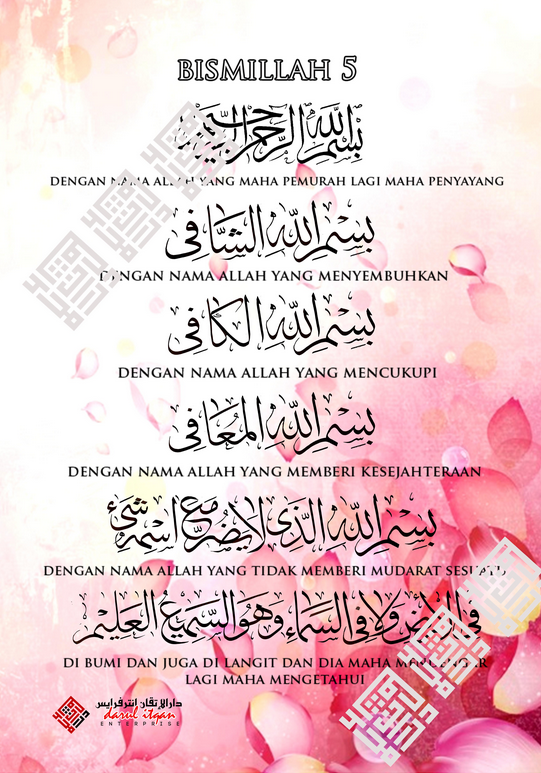 BISMILLAH 5
بِسْمِ اللهِ الرَّحْمَنِ الرَّحِيمِ
DENGAN NAMA ALLAH YANG MAHA PEMURAH LAGI MAHA PENYAYANG
بِسْمِ اللهِ الشَّافِي
DENGAN NAMA ALLAH YANG MENYEMBUHKAN
بِسْمِ اللهِ الْكَافِي
DENGAN NAMA ALLAH YANG MENCUKUPI
بِسْمِ اللهِ الْمُعَافِي
DENGAN NAMA ALLAH YANG MEMBERI KESEJAHTERAAN
بِسْمِ اللهِ الَّذِى لَا يَضُرُّ مَعَ اسْمِهِ شَيْءٌ
DENGAN NAMA ALLAH YANG TIDAK MEMBERI MUDARAT SESUATU
فِي الْأَرْضِ وَلَا فِي السَّمَاءِ وَهُوَ السَّمِيعُ الْعَلِيْمُ
DI BUMI DAN JUGA DI LANGIT DAN DIA MAHA MENDENGAR
LAGI MAHA MENGETAHUI
دارالاتقان انترفرايس
darul itqan
ENTERPRISE